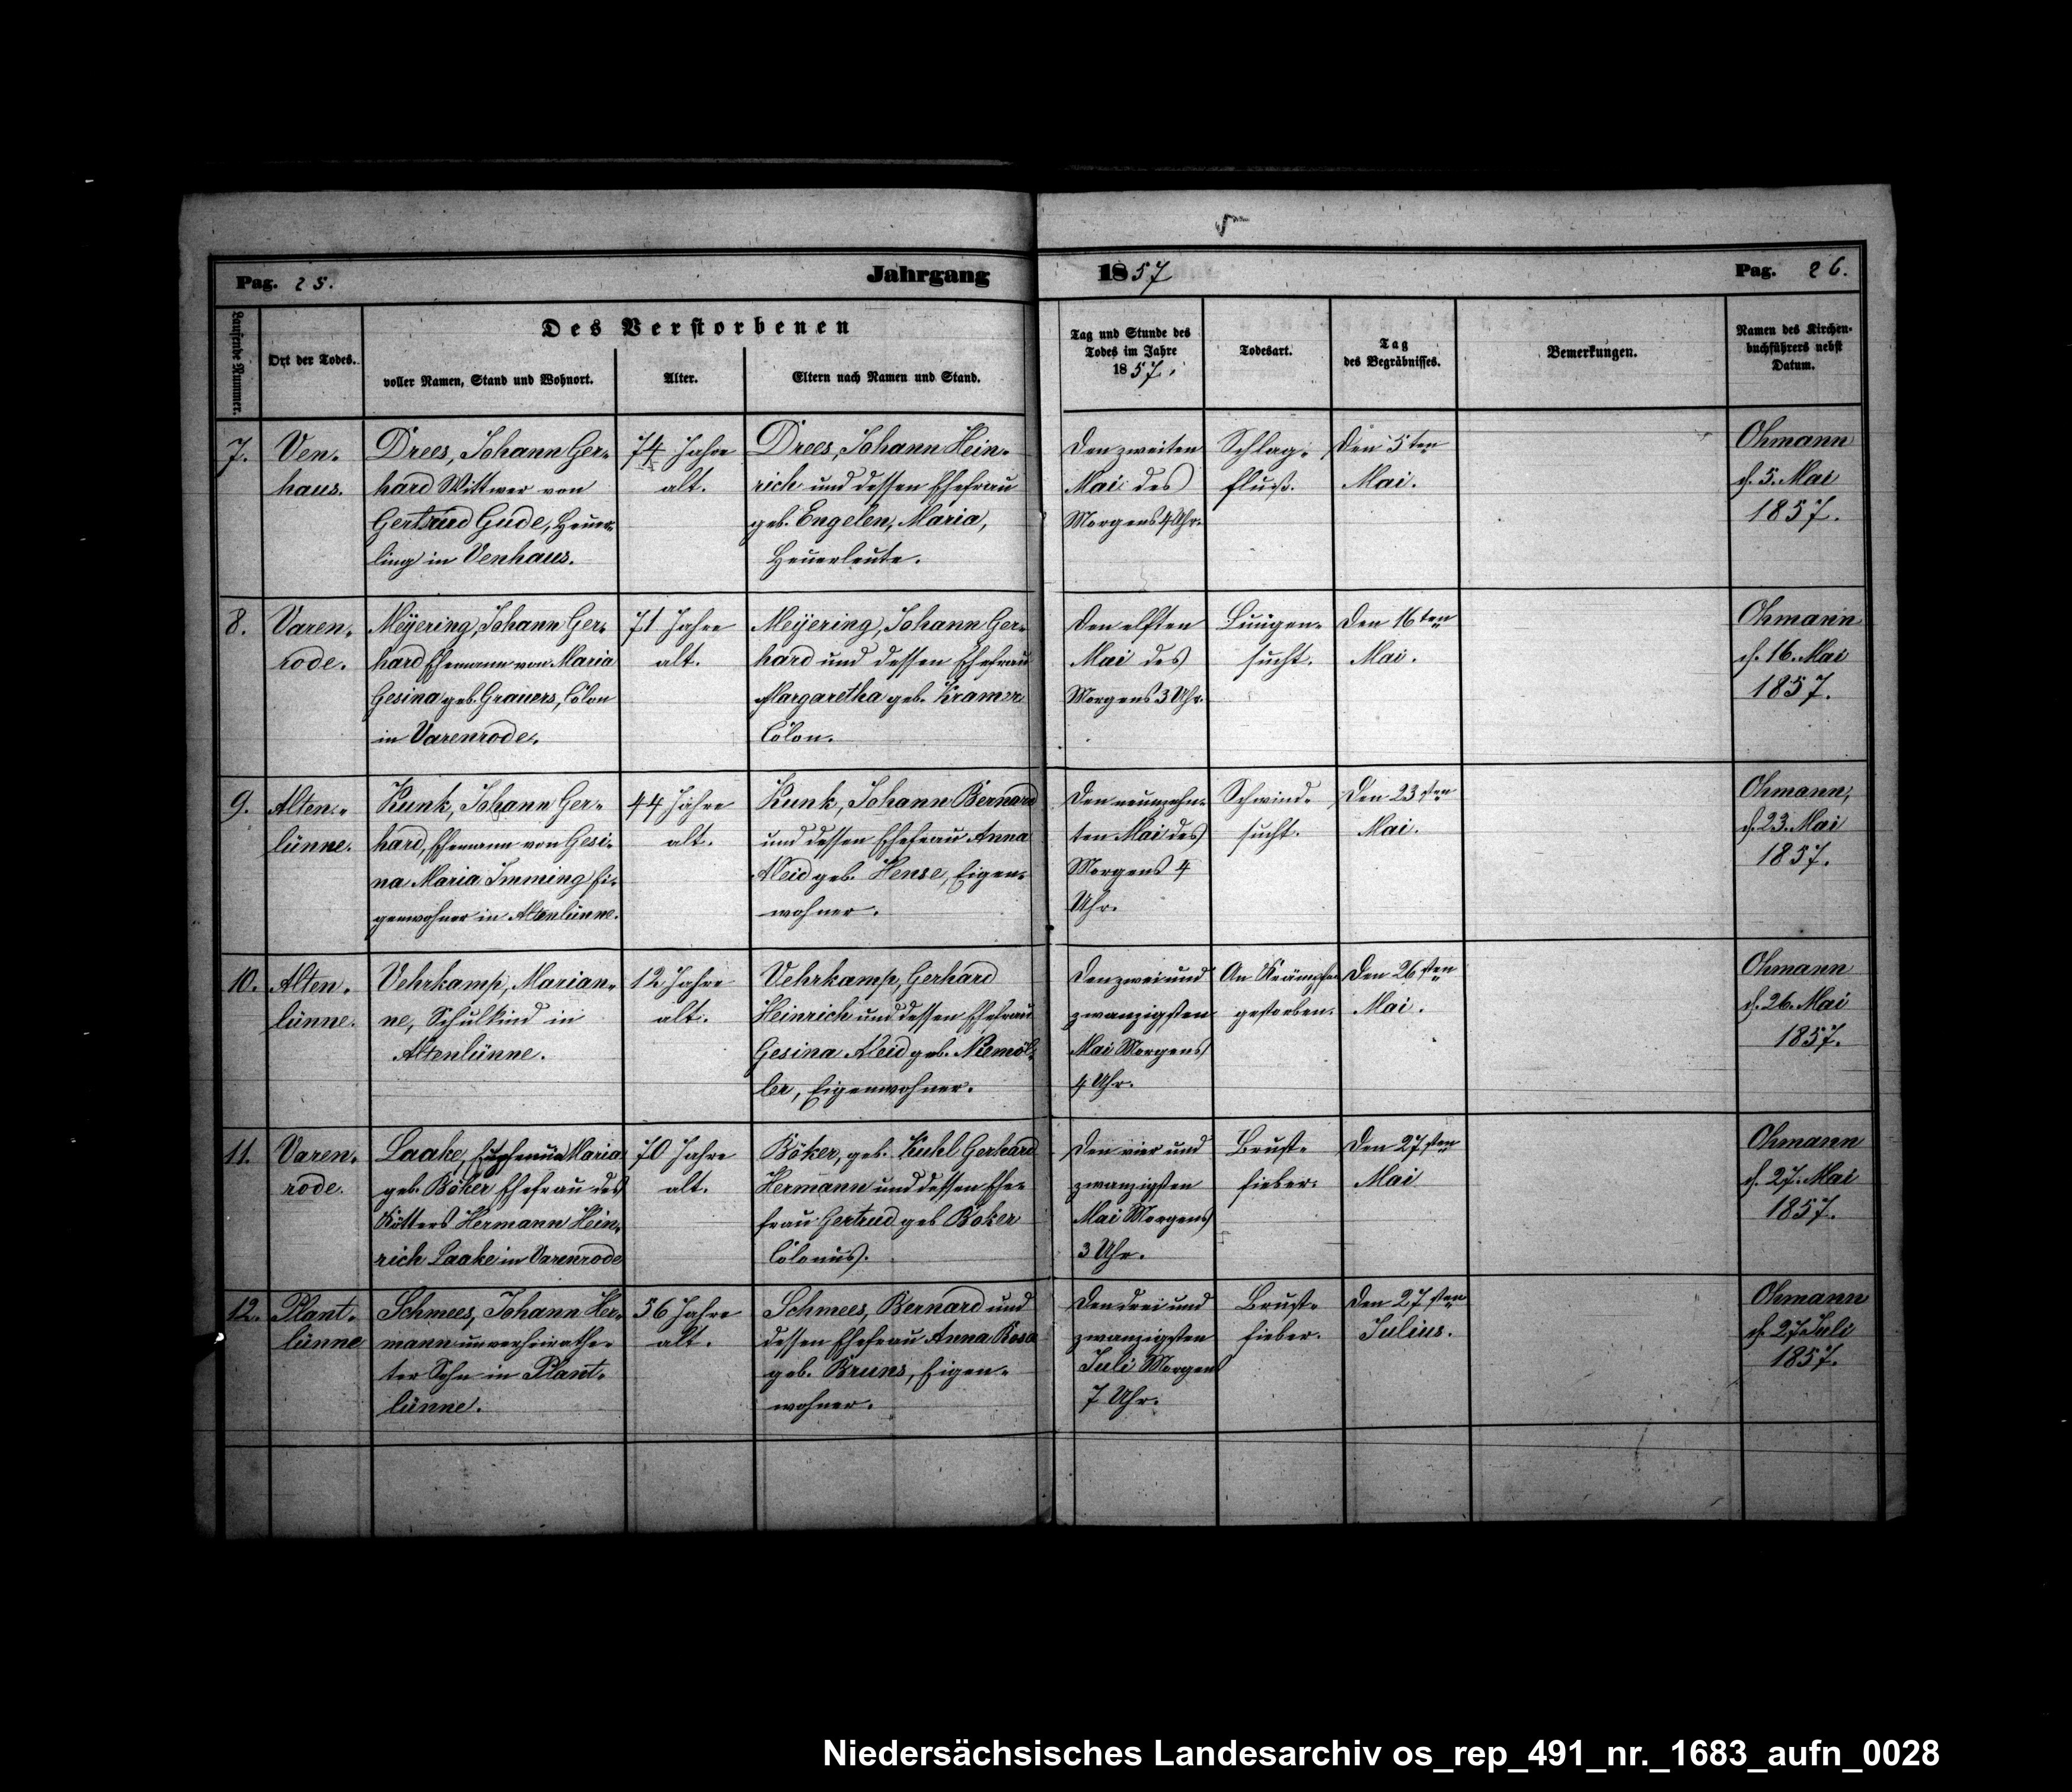 Pag. 25.
Jahrgang
1857
Pag. 26.
Laufende Nummer.
Ort der Todes.
Des Verstorbenen
voller Namen, Stand und Wohnort.
Alter.
Eltern nach Namen und Stand.
Tag und Stunde des
Todes im Jahre
1857.
Todesart.
Tag
des Begräbnisses.
Bemerkungen.
Namen des Kirchen-
buchführers nebst
Datum.
7.
Ven-
haus.
Drees, Johann Ger-
hard Wittwer von
Gertrud Gude, Heuer-
ling in Venhaus.
74 Jahre
alt.
Drees, Johann Hein-
rich und dessen Ehefrau
geb. Engelen, Maria,
Heuerleute.
Den zweiten
Mai des
Morgens 4 Uhr.
Schlag-
fluß.
Den 5ten
Mai.
Ohmann
d. 5. Mai
1857.
8.
Varen-
rode.
Meÿering, Johann Ger-
hard Ehemann von Maria
Gesina geb. Grauers, Colon
in Varenrode.
71 Jahre
alt.
Meÿering, Johann Ger-
hard und dessen Ehefrau
Margaretha geb. Kramer
Colon.
Den elften
Mai des
Morgens 3 Uhr.
Lungen-
sucht.
Den 16ten
Mai.
Ohmann
d. 16. Mai
1857.
9.
Alten-
lünne.
Kunk, Johann Ger-
hard, Ehemann von Gesi-
na Maria Imming Ei-
genwohner in Altenlünne.
44 Jahre
alt.
Kunk, Johann Bernard
und dessen Ehefrau Anna
Aleid geb. Hense, Eigen-
wohner.
Den neunzehn-
ten Mai des
Morgens 4
Uhr.
Schwind-
sucht.
Den 23sten
Mai.
Ohmann,
d. 23. Mai
1857.
10.
Alten-
lünne.
Vehrkamp, Marian-
ne, Schulkind in
Altenlünne.
12 Jahre
alt.
Vehrkamp, Gerhard
Heinrich und dessen Ehefrau
Gesina Aleid geb. Niemöl-
ler, Eigenwohner.
Den zwei und
zwanzigsten
Mai Morgens
4 Uhr.
An Krämpfen
gestorben.
Den 26sten
Mai.
Ohmann
d. 26. Mai
1857.
11.
Varen-
rode.
Laake, Maria
geb. Böker Ehefrau des
Kötters Hermann Hein-
rich Laake in Varenrode
70 Jahre
alt.
Böker, geb. Kuhl Gerhard
Hermann und dessen Ehe-
frau Gertrud geb Böker
Colonus.
Den vier und
zwanzigsten
Mai Morgens
3 Uhr.
Brust-
fieber.
Den 27sten
Mai
Ohmann
d. 27. Mai
1857.
12.
Plant-
lünne
Schmees, Johann Her-
mann unverheirathe-
ter Sohn in Plant-
lünne.
56 Jahre
alt.
Schmees, Bernard und
dessen Ehefrau Anna Rosa
geb. Bruns, Eigen-
wohner.
Den drei und
zwanzigsten
Juli Morgens
7 Uhr.
Brust-
fieber.
Den 27sten
Julius.
Ohmann
d. 27 Juli
1857.
Niedersächsisches Landesarchiv os_rep_491_nr._1683_aufn_0028